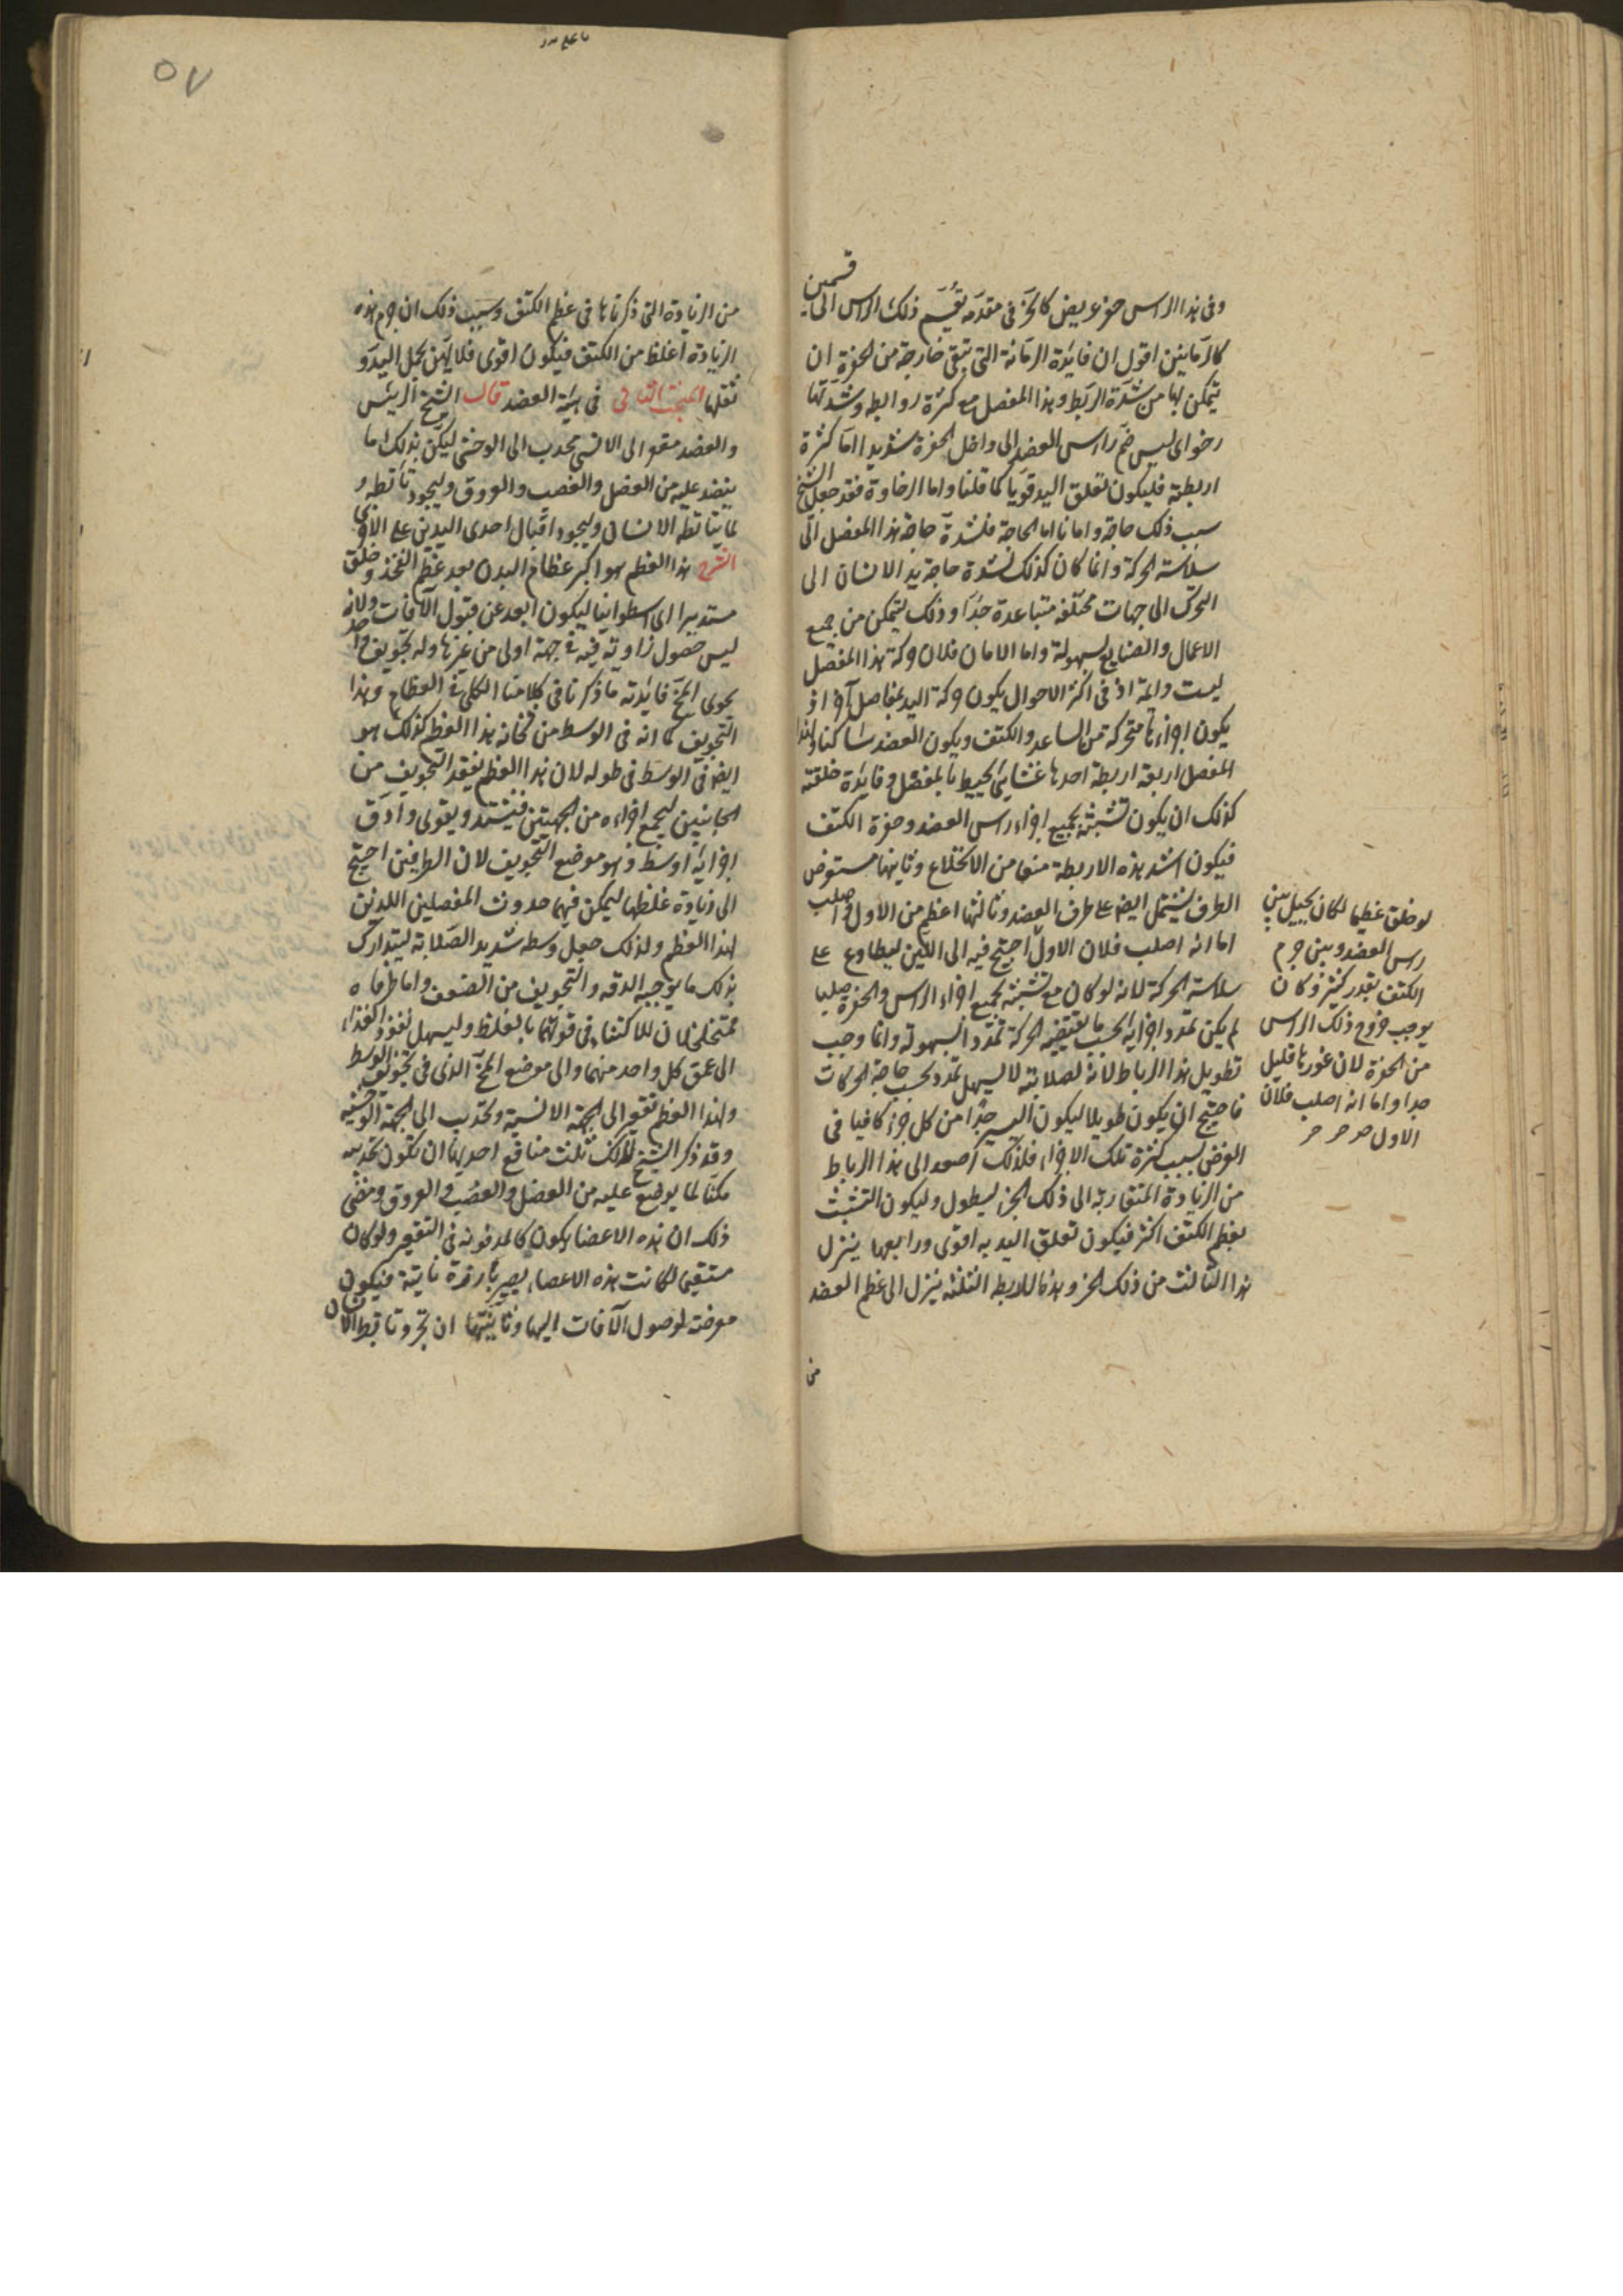 وفى هذا الراس حز عريض كالحز فى مقدمه يقسم ذلك الراس الى قسمين
كالرمانتين اقول ان فايدة الرمانة التى تبقى خارجة من الحفرة ان
يتمكن بها من شدة الربط وهذا المفصل مع كثرة روابطه وشدتها
رخو اى ليس ضم راس العضد الى داخل الحفرة شديدا اما كثرة
اربطته فليكون تعلق اليد قويا كما قلنا واما الرخاوة فقد جعل الشيخ
سبب ذلك حاجة وامانا اما الحاجة فلشدة حاجة هذا المفصل الى
سلاسة الحركة وانما كان كذلك لشدة حاجة يد الانسان الى
التحرك الى جهات مختلفة متباعدة جدا وذلك ليتمكن من جميع
الاعمال والصنايع بسهولة واما الامان فلان حركة هذا المفصل
ليست دايمة اذ فى اكثر الاحوال يكون حركة اليد بمفاصل آخر اذ
يكون اجزاءها متحركة من الساعد والكتف ويكون العضد ساكنا ولهذا
المفصل اربعة اربطة احدها غشايى محيط بالمفصل وفايدة خلقته
كذلك ان يكون تشبثه بجميع اجزاء راس العضد وحفرة الكتف
فيكون اشد هذه الاربطة منعا من الانخلاع وثانيها مستعرض
الطرف يشتمل ايضا على طرف العضد وثالثها اعظم من الاول واصلب
اما انه اصلب فلان الاول احتيج فيه الى اللين ليطاوع على
سلاسة الحركة لانه لو كان مع تشبثه بجميع اجزاء الراس والحفرة صلبا
لم يكن تمدد اجزايه بحسب ما يقتضيه الحركة تمدد السهولة وانما وجب
تطويل هذا الرباط لانه لصلابته لا يسهل تمدده بحسب حاجة الحركات
فاحتيج ان يكون طويلا ليكون اليسير جدا من كل جزء كافيا فى
الغرض بسبب كثرة تلك الاجزاء فلذلك اصعد الى هذا الرباط
من الزيادة المنقارية الى ذلك الجزء ليطول وليكون التشبث
بعظم الكتف اكثر فيكون تعلق اليد به اقوى ورابعها ينزل
هذا الثالث من ذلك الحز وهذه الاربطه الثلثه ينزل الى عظم العضد
من
لو خلق عظيما لكان يحيل بين
راس العضد وبين جرم
الكتف بقدر كثير وكان
يوجب خروج ذلك الراس
من الحفرة لان غورها قليل
جدا واما انه اصلب فلان
الاول
٥٧
من الزيادة التى ذكرناها فى عظم الكتف وسبب ذلك ان جرم هذه
الزيادة اغلظ من الكتف فيكون اقوى فلا يهن بحمل اليد و
ثقلها البحث الثانى فى هيئة العضد قال الشيخ الرئيس
والعضد مقعر الى الانسى محدب الى الوحشى ليكن بذلك ما
ينضد عليه من العضل والعصب والعروق وليجود تأبط
لما يتأبطه الانسان وليجود اقبال احدى اليدين على الاخرى
الشرح هذا العظم هو اكبر عظام البدن بعد عظم الفخذ وخلق
مستديرا الى اسطوانيا ليكون ابعد عن قبول الآفات ولانه
ليس حصول زاوية فيه فى جهة اولى من غيرها وله تجويف واحد
يحوى المخ فايدته ما ذكرنا فى كلامنا الكلى فى العظام وهذا
التجويف كما انه فى الوسط من ثخانة هذا العظم كذلك هو
ايضا فى الوسط فى طوله لان هذا العظم يفقد التجويف من
الجانبين ليجمع اجزاءه من الجهتين فيشتد ويقوى وادق
اجزايه اوسطه وهو موضع التجويف لان الطرفين احتيج
الى زيادة غلظها ليمكن فيهما حدوث المفصلين اللذين
لهذا العظم ولذلك جعل وسطه شديد الصلابة ليتدارك
بذلك ما يوجبه الدقه والتجويف من الضعف واما طرفاه
متخلخلان للاكتفاء فى قوتهما بالغلظ وليسهل نفوذ الغذاء
الى عمق كل واحد منهما والى موضع المخ الذى فى تجويف الوسط
ولهذا العظم تقعير الى الجهة الانسية وتحدب الى الجهة الوحشية
وقد ذكر الشيخ لذلك ثلث منافع احديها ان تكون تحديبه
مكنا لما يوضع عليه من العضل والعصب والعروق ومعنى
ذلك ان هذه الاعضاء يكون كالمدفونة فى التقعير ولو كان
مستقيما لكانت هذه الاعضاء يصير بارزة ناتية فيكون
معرضة لوصول الآفات اليها وثانيتها ان تجود تابط الانسان